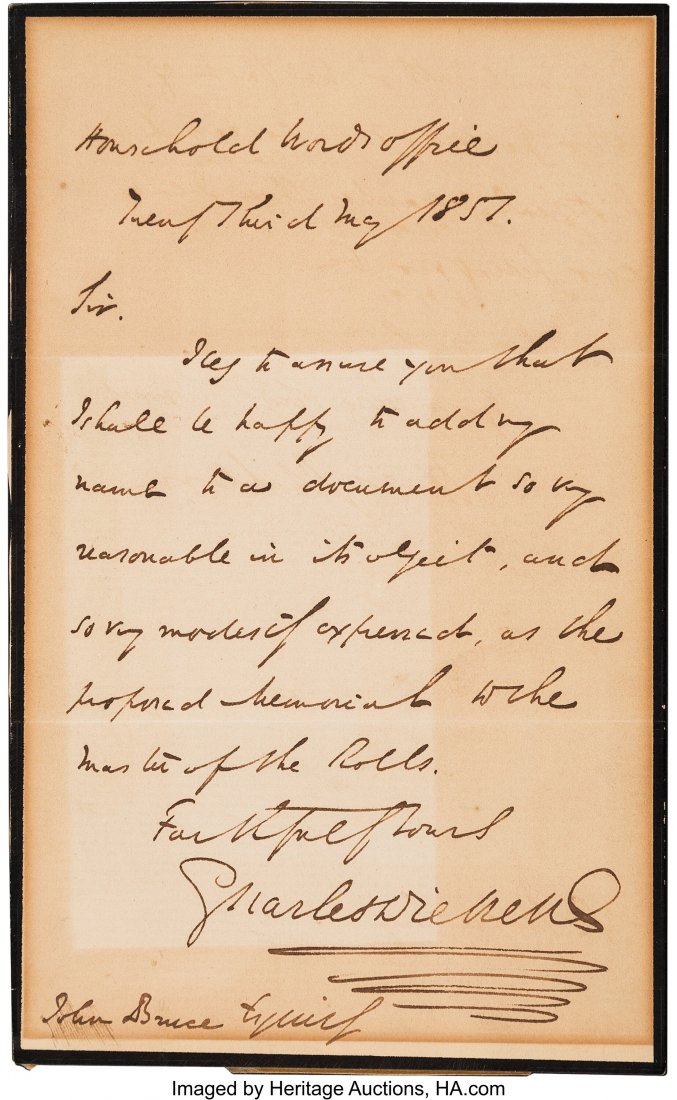 Household Words office
Twenty Third May 1851.
Sir.
I beg to assure you that
I shall be happy to add my
name to a document so very
reasonable in its object, and
so very modestly expressed, as the
proposed Memorial to the
Master of the Rolls.
Faithfully Yours
Charles Dickens
John Bruce Esquire
Imaged by Heritage Auctions, HA.com